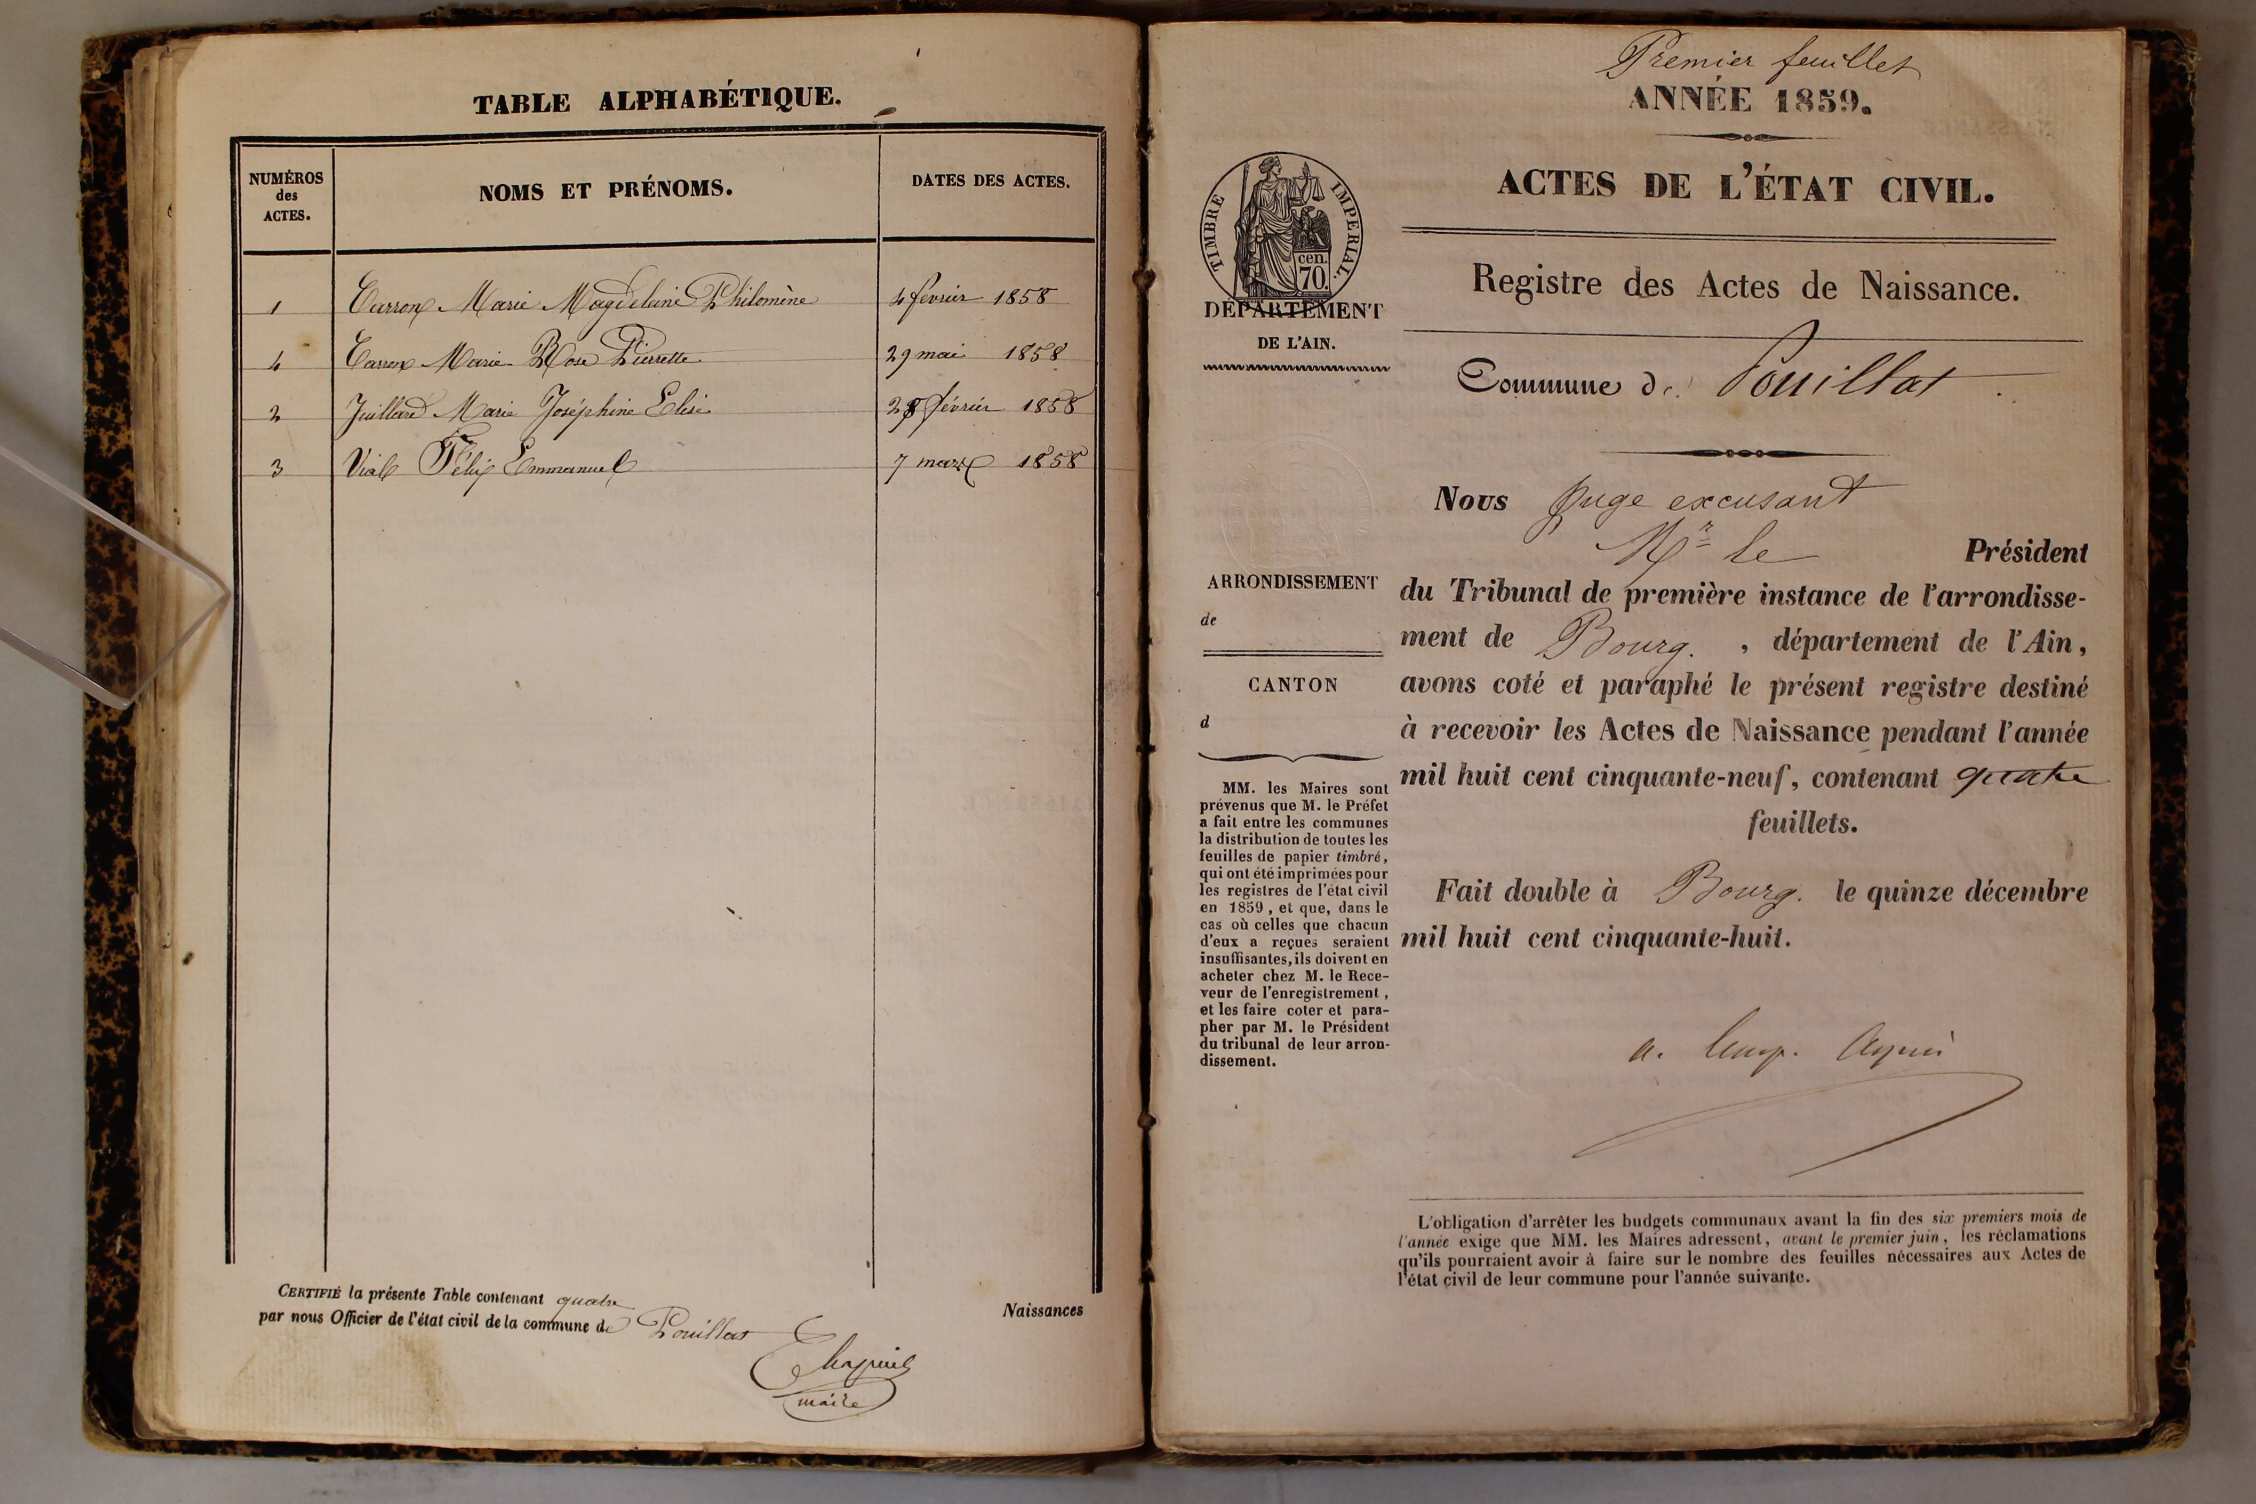 TABLE ALPHABÉTIQUE.
NUMÉROS
des
ACTES.
NOMS ET PRÉNOMS.
DATES DES ACTES.
1 Carron Marie Magdeleine Philomène 4 février 1858
4 Carron Marie Rose Pierrette 29 mai 1858
2 Juillard Marie Joséphine Elise 28 février 1858
3 Vial Félix Emmanuel 7 mars 1858
CERTIFIÉ la présente Table contenant quatre
Naissances
par nous Officier de l'état civil de la commune de Pouillat
maire
Premier feuillet
ANNÉE 1859.
ACTES DE L'ÉTAT CIVIL.
TIMBRE IMPERIAL.
cen.
70.
DÉPARTEMENT
DE L'AIN.
Registre des Actes de Naissance.
Commune de Pouillat
Nous Juge excusant
Mr le Président
du Tribunal de première instance de l'arrondisse-
ment de Bourg. , département de l'Ain,
avons coté et paraphé le présent registre destiné
à recevoir les Actes de Naissance pendant l'année
mil huit cent cinquante-neuf, contenant quatre
feuillets.
Fait double à Bourg. le quinze décembre
mil huit cent cinquante-huit.
ARRONDISSEMENT
de
CANTON
d
MM. les Maires sont
prévenus que M. le Préfet
a fait entre les communes
la distribution de toutes les
feuilles de papier timbré,
qui ont été imprimées pour
les registres de l'état civil
en 1859, et que, dans le
cas où celles que chacun
d'eux a reçues seraient
insuffisantes, ils doivent en
acheter chez M. le Rece-
veur de l'enregistrement,
et les faire coter et para-
pher par M. le Président
du tribunal de leur arron-
dissement.
L'obligation d'arrêter les budgets communaux avant la fin des six premiers mois de
l'année exige que MM. les Maires adressent, avant le premier juin, les réclamations
qu'ils pourraient avoir à faire sur le nombre des feuilles nécessaires aux Actes de
l'état civil de leur commune pour l'année suivante.